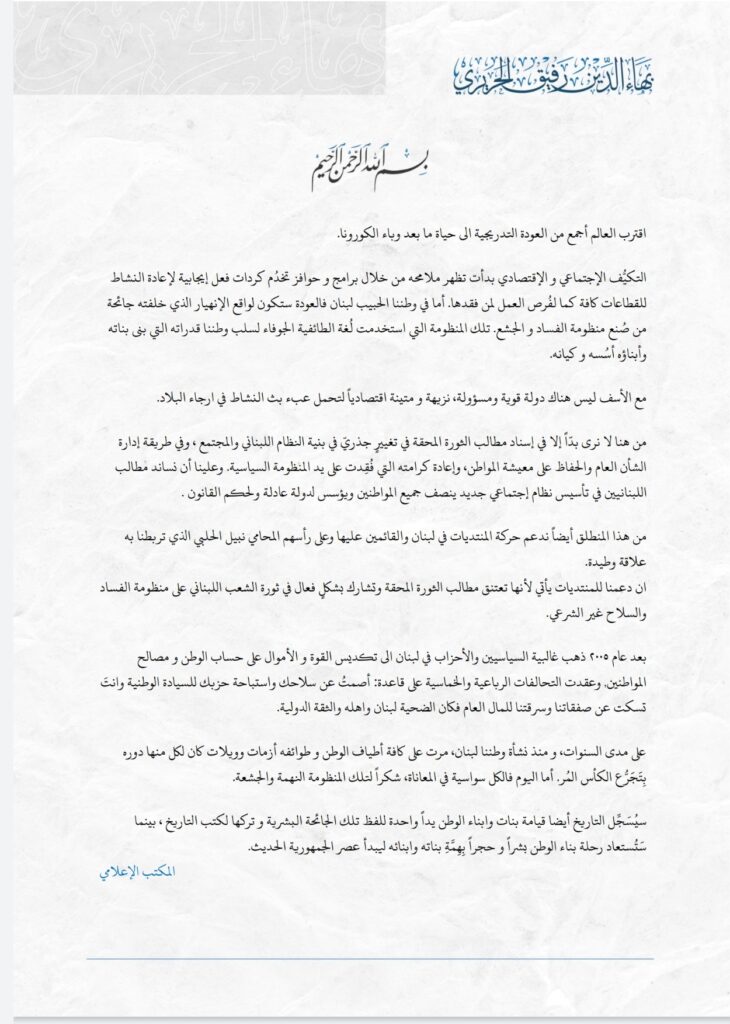 بهاء الدين رفيق الحريري
بسم الله الرحمن الرحيم
اقترب العالم أجمع من العودة التدريجية الى حياة ما بعد وباء الكورونا.
التكيُّف الإجتماعي و الإقتصادي بدأت تظهر ملامحه من خلال برامج و حوافز تخدُم كردات فعل إيجابية لإعادة النشاط
للقطاعات كافة كما لفُرص العمل لمن فقدها. أما في وطننا الحبيب لبنان فالعودة ستكون لواقع الإنهيار الذي خلفته جائحة
من صُنع منظومة الفساد و الجشع. تلك المنظومة التي استخدمت لُغة الطائفية الجوفاء لسلب وطننا قدراته التي بنى بناته
وأبناؤه أسُسه و كيانه.
مع الأسف ليس هناك دولة قوية ومسؤولة، نزيهة و متينة اقتصادياً لتحمل عبء بث النشاط في ارجاء البلاد.
من هنا لا نرى بدّاً إلا في إسناد مطالب الثورة المحقة في تغييرٍ جذريّ في بنية النظام اللبناني والمجتمع ، وفي طريقة إدارة
الشأن العام والحفاظ على معيشة المواطن، وإعادة كرامته التي فُقِدت على يد المنظومة السياسية. وعلينا أن نساند مطالب
اللبنانيين في تأسيس نظام إجتماعي جديد ينصف جميع المواطنين ويؤسس لدولة عادلة ولحكم القانون .
من هذا المنطلق أيضاً ندعم حركة المنتديات في لبنان والقائمين عليها وعلى رأسهم المحامي نبيل الحلبي الذي تربطنا به
علاقة وطيدة.
ان دعمنا للمنتديات يأتي لأنها تعتنق مطالب الثورة المحقة وتشارك بشكلٍ فعال في ثورة الشعب اللبناني على منظومة الفساد
والسلاح غير الشرعي.
بعد عام ٢٠٠٥ ذهب غالبية السياسيين والأحزاب في لبنان الى تكديس القوة و الأموال على حساب الوطن و مصالح
المواطنين. وعقدت التحالفات الرباعية والخماسية على قاعدة: أصمتُ عن سلاحك واستباحة حزبك للسيادة الوطنية وانتَ
تسكت عن صفقاتنا وسرقتنا للمال العام فكان الضحية لبنان واهله والثقة الدولية.
على مدى السنوات، و منذ نشأة وطننا لبنان، مرت على كافة أطياف الوطن و طوائفه أزمات وويلات كان لكل منها دوره
بِتَجَرُّع الكأس المُر. أما اليوم فالكل سواسية في المعاناة، شكراً لتلك المنظومة النهمة والجشعة.
سيُسَجِّل التاريخ أيضا قيامة بنات وابناء الوطن يداً واحدة للفظ تلك الجائحة البشرية و تركها لكتب التاريخ ، بينما
سَتُستعاد رحلة بناء الوطن بشراً و حجراً بِهِمَّةِ بناته وابنائه ليبدأ عصر الجمهورية الحديث.
المكتب الإعلامي